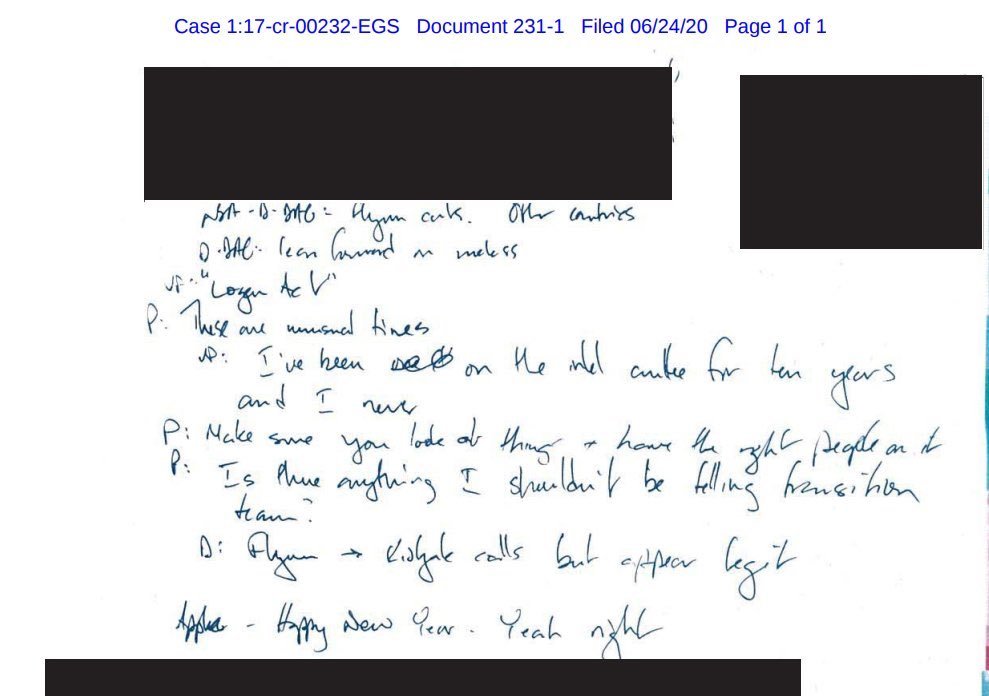 Case 1:17-cr-00232-EGS Document 231-1 Filed 06/24/20 Page 1 of 1
NSA - D-DAG: Flynn cuts. Other countries
D-DAG: lean forward on unclass
VP: "Logan Act"
P: These are unusual times
VP: I've been on the intel cmttee for ten years
and I never
P: Make sure you look at things + have the right people on it
P: Is there anything I shouldn't be telling transition
team?
D: Flynn → Kislyak calls but appear legit
- Happy New Year. Yeah right